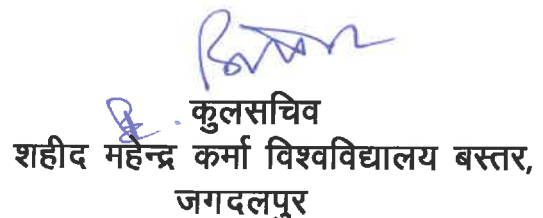 कुलसचिव
शहीद महेन्द्र कर्मा विश्वविद्यालय बस्तर,
जगदलपुर